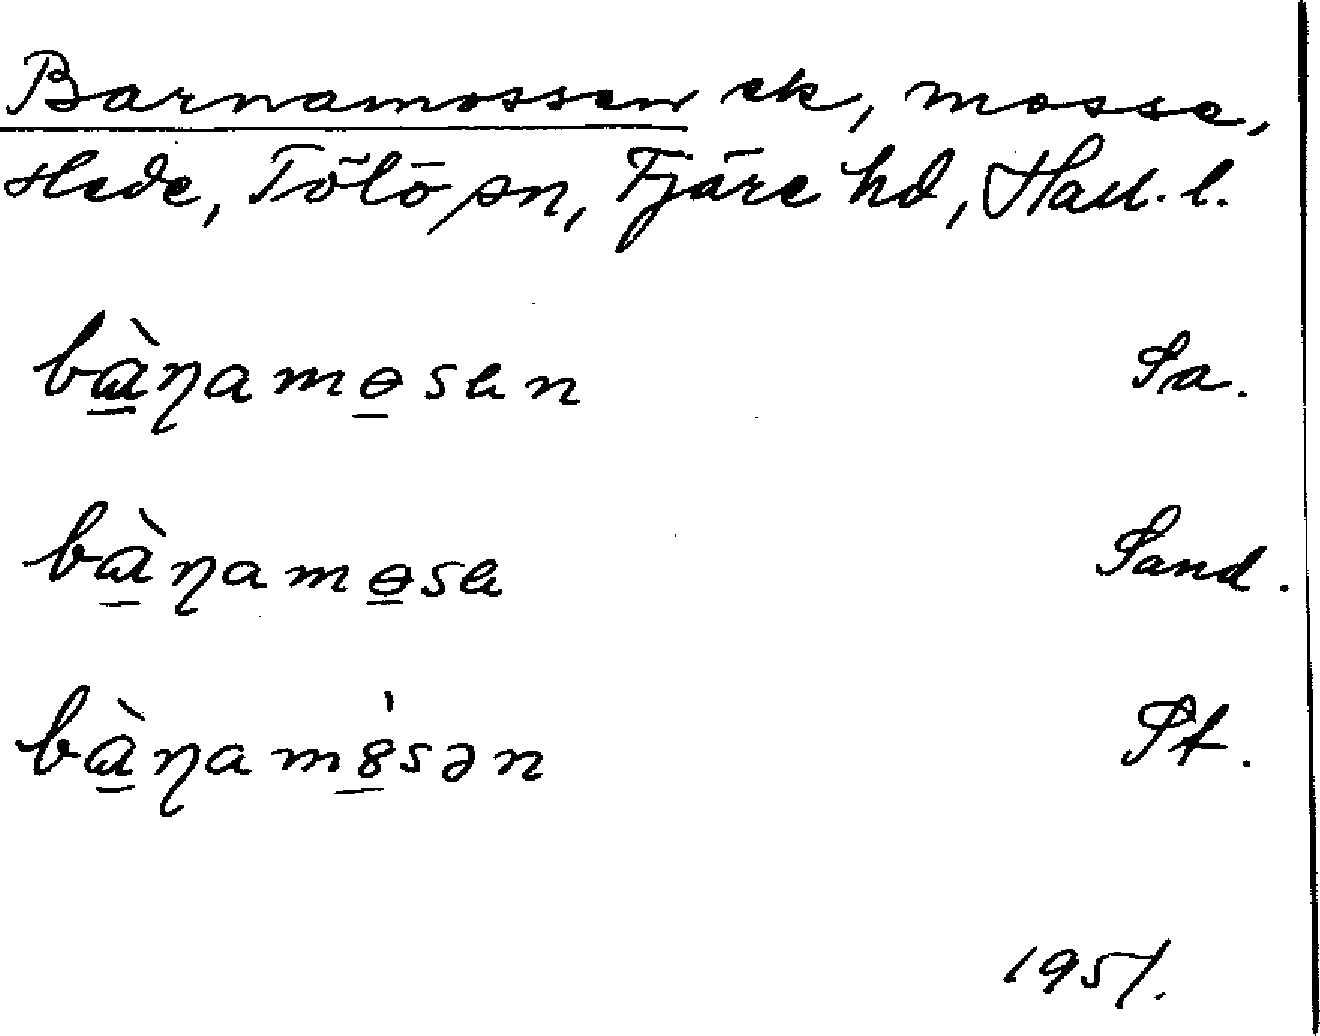 Barnamossen ek, mosse,
Hede, Tölö sn, Fjäre hd, Hall. l.
bɑ̠̀ɳamɵ̠sen Sa.
bɑ̠̀ɳamɵ̠se Sand.
bɑ̠̀ɳam8̠̀sən St.
1951.